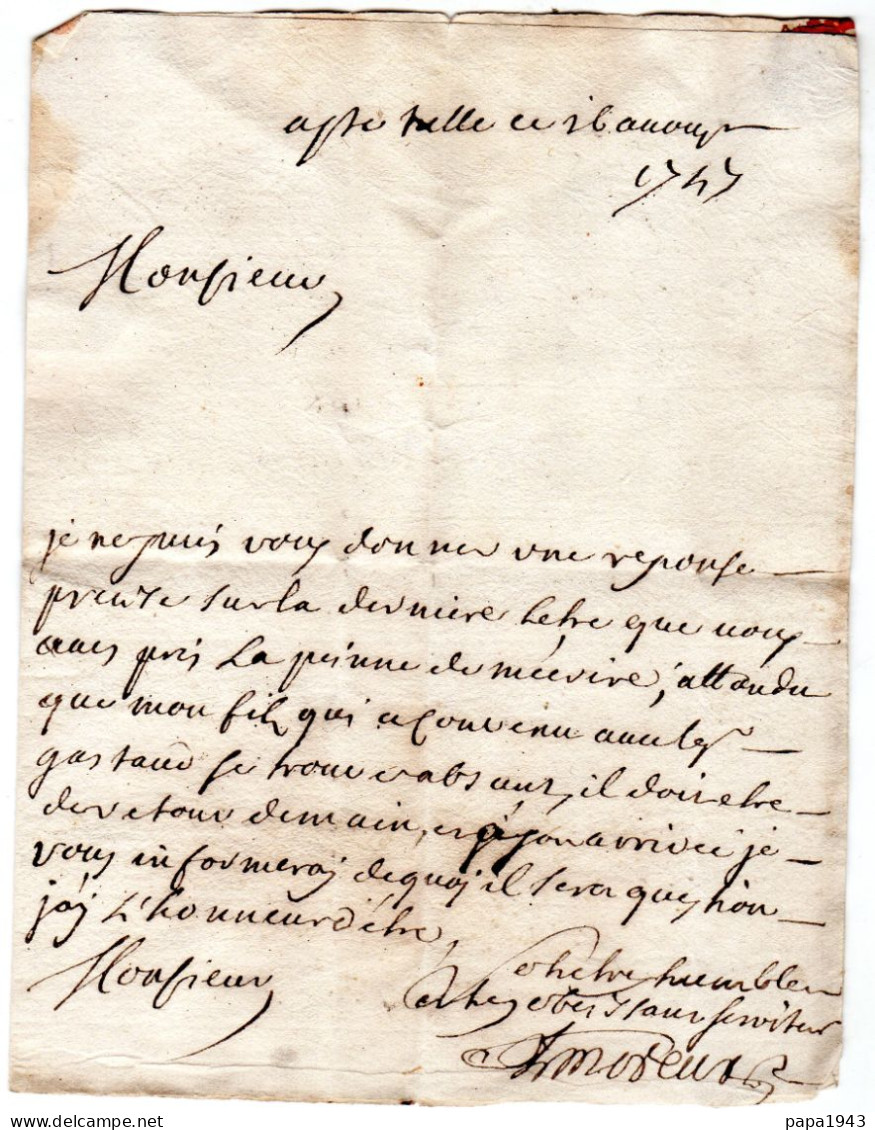 ce 16 auoust
1747
Monsieur
je ne puis vous donner une reponse
presise sur la derniere letre que vous
aues pris la peinne de mécrire, attandu
que mon fils qui a convenu auec le sr
gastaud se trouve absant, il doit etre
de retour demain, et a son arrivée je
vous informeray de quoy il sera question
jáy L'honneur d'être,
Monsieur
Votre tres humble
et tres obeissant serviteur
papa1943